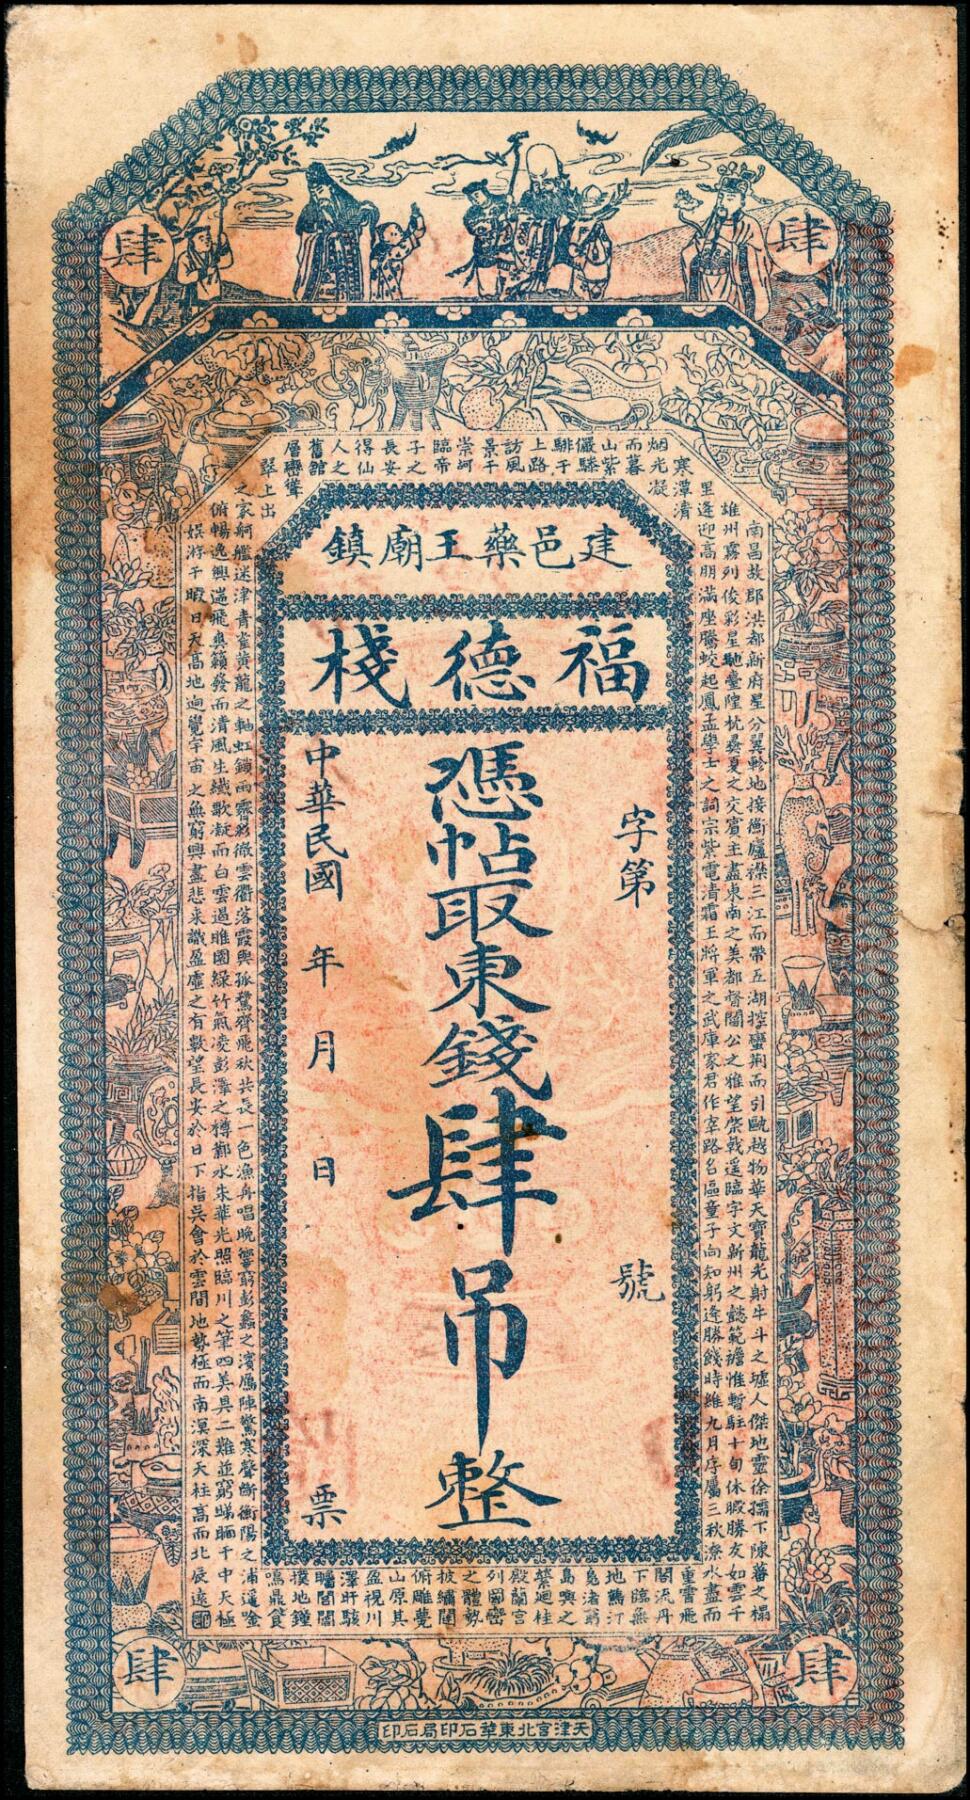 肆
肆
建邑藥王廟鎮
福德棧
字第 號
憑帖取東錢肆吊整
中華民國 年 月 日 票
南昌故郡洪都新府星分翼軫地接衡廬襟三江而帶五湖控蠻荊而引甌越物華天寶龍光射牛斗之墟人傑地靈徐孺下陳蕃之榻
雄州霧列俊彩星馳臺隍枕夷夏之交賓主盡東南之美都督閻公之雅望棨戟遙臨宇文新州之懿範襜惟暫駐十旬休暇勝友如雲千
里逢迎高朋滿座騰蛟起鳳孟學士之詞宗紫電清霜王將軍之武庫家君作宰路名區童子何知躬逢勝餞時維九月序屬三秋潦水盡而
寒潭清
烟光凝
而暮
山紫
儼驂
騑于
上路
訪風
景于
崇阿
臨帝
子之
長安
得仙
人之
舊館
層巒聳
翠上出
重霄飛
閣流丹
下臨無
地鶴汀
鳧渚窮
島嶼之
縈迴桂
殿蘭宮
列岡巒
之體勢
披繡闥
俯雕甍
山原其
盈視川
澤盱駭
矚閭閻
撲地鐘
鳴鼎食
之家舸艦迷津青雀黃龍之軸虹銷雨霽彩徹雲衢落霞與孤鶩齊飛秋共長一色漁舟唱晚響窮彭蠡之濱雁陣驚寒聲斷衡陽之浦遙吟
俯暢逸興遄飛爽籟發而清風生纖歌凝而白雲遏睢園綠竹氣凌彭澤之樽鄴水朱華光照臨川之筆四美具二難並窮睇眄于中天極
娛游于暇日天高地迥覺宇宙之無窮興盡悲來識盈虛之有數望長安於日下指吳會於雲間地勢極而南溟深天柱高而北辰遠
肆
肆
天津宮北東華石印局石印